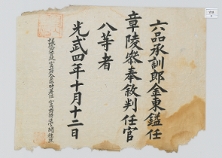 六品承訓郎金東鎰任
章陵參奉敍判任官
八等者
光武四年十月十二日